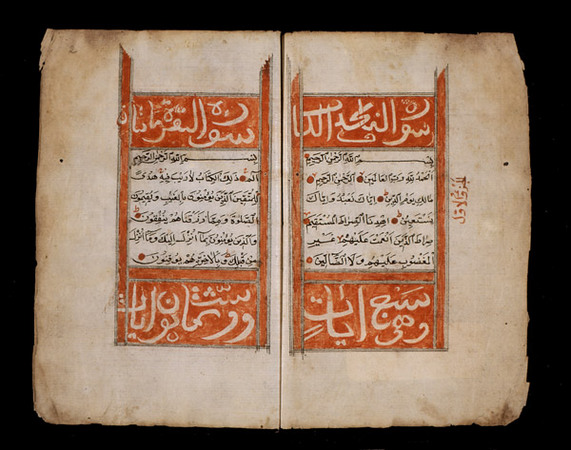 سورة
بسم الله الرحمن الرحيم
الحمد لله رب العالمين الرحمن الرحيم
مالك يوم الدين اياك نعبد واياك
نستعين اهدنا الصراط المستقيم
صراط الذين انعمت عليهم غير
المغضوب عليهم ولا الضالين
وهي سبع ايات
الجزء الاول
سورة البقرة مائتان
بسم الله الرحمن الرحيم
الم ذلك الكتاب لا ريب فيه هدى
للمتقين الذين يؤمنون بالغيب ويقيمون
الصلوة ومما رزقناهم ينفقون
والذين يؤمنون بما انزل اليك وما انزل
من قبلك وبالاخرة هم يوقنون
وست وثمانون ايات